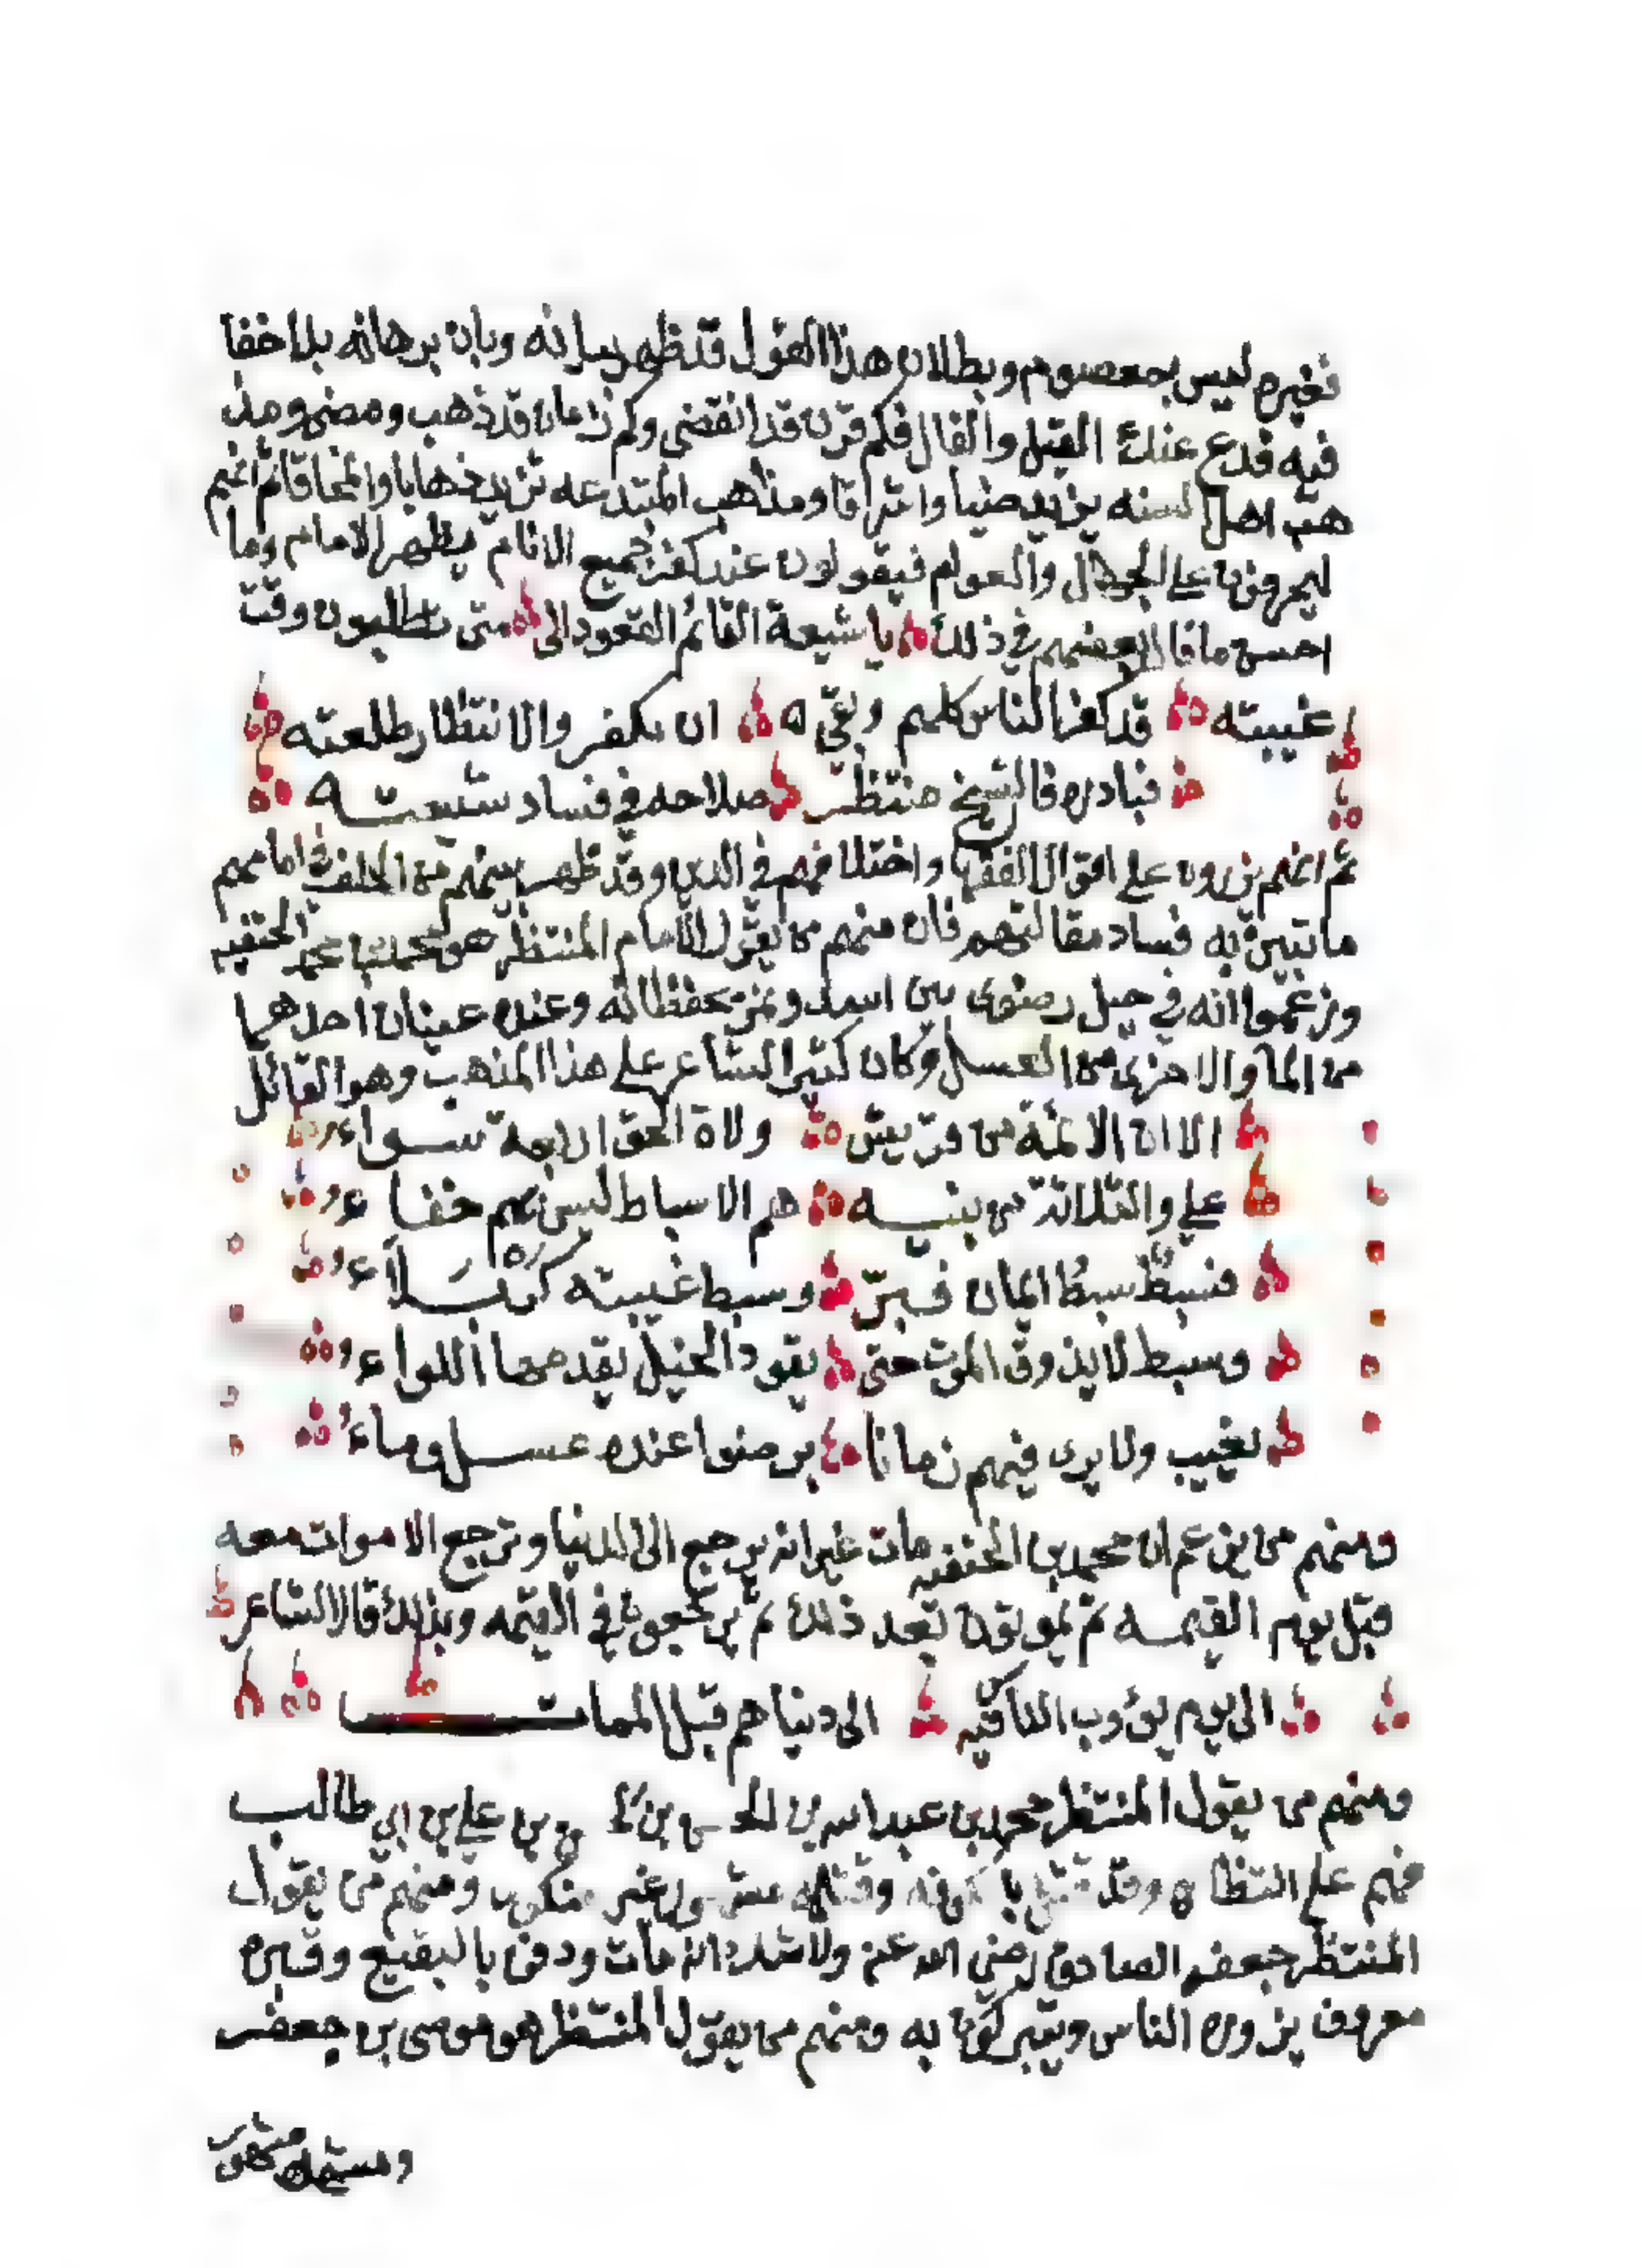 فغيره ليس بمعصوم وبطلان هذا القول قد ظهر بيانه وبان برهانه بلا خفا
فيه فدع عنك القيل والقال فكم قرن قد انقضى وكم زمان قد ذهب ومضى ومذ
هب اهل السنه يزيد ضيا واشراقا ومذاهب المبتدعه تزيد ذهابا وانمحاقا ثم انهم
ليحرفون على الجهال والعوام فيقولون عند كفر جميع الانام يظهر الامام وما
احسن ما قال بعضهم في ذلك يا شيعة القائم القعود الى متى تطلبون وقت
غيبته قد كفر الناس كلهم وبقي ان يكفر والانتظار طلعته
فبادروا فالشيخ منتظر صلاحه في فساد شيعته
ثم انهم يزرون على اقوال الفقها واختلافهم في الدين وقد ظهر بينهم من الخلف في امامهم
ما تبين به فساد مقالتهم فان منهم من يقول الامام المنتظر هو محمد الحنفيه
وزعموا انه في جبل رضوى بين اسد ونمر يحفظانه وعنده عينان احدهما
من الما والاخرى من العسل وكان كثير الشاعر على هذا المذهب وهو القائل
الا ان الائمة من قريش ولاة الحق اربعة سواء
علي والثلاثة من بنيه هم الاسباط ليس بهم خفاء
فسبط سبط ايمان وبر وسبط غيبته كربلاء
وسبط لا يذوق الموت حتى يقود الخيل يقدمها اللواء
يغيب ولا يرى فيهم زمانا برضوا عنده عسل وماء
ومنهم من يزعم ان محمد بن الحنفيه مات غير انه يرجع الى الدنيا وترجع الاموات معه
قبل يوم القيمه ثم يموتون بعد ذلك ثم يرجعون في القيمه وبذلك قال الشاعر
الى يوم يؤوب الناس فيه الى دنياهم قبل الممات
ومنهم من يقول المنتظر محمد بن عبد الله بن الحسن بن بن علي بن ابي طالب
فهم على انتظاره وقد قتل بالكوفه وقتله مشهور غير منكور ومنهم من يقول
المنتظر جعفر الصادق رضي الله عنه ولا شك انه مات ودفن بالبقيع وقبره
معروف يزوره الناس ويتبركون به ومنهم من يقول المنتظر هو موسى بن جعفر
ومشهده مشهور